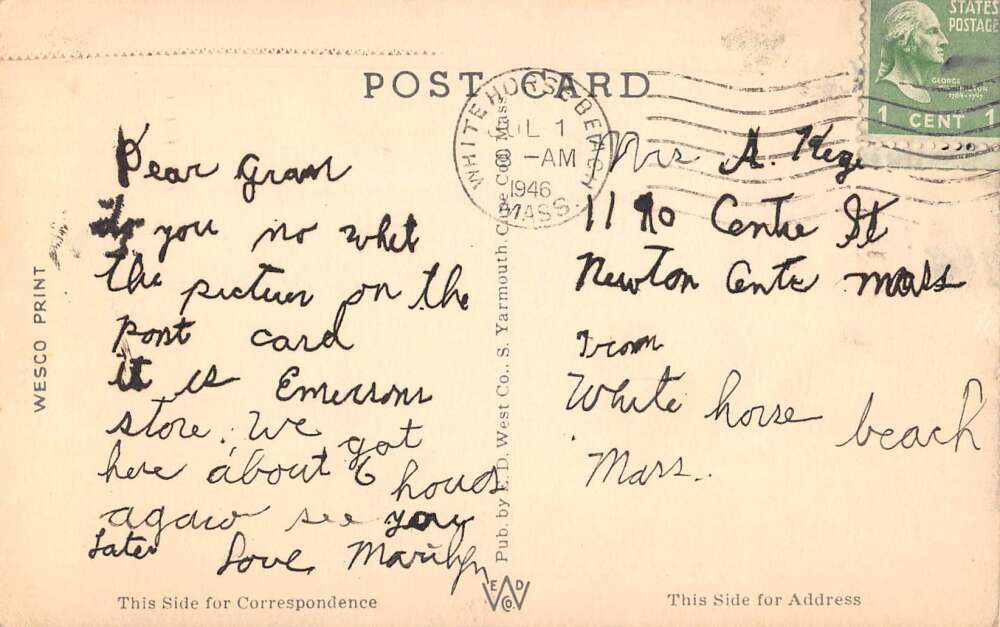 POST CARD
STATES
POSTAGE
GEORGE
WASHINGTON
1 CENT 1
WHITE HORSE BEACH
JUL 1
8 -AM
1946
MASS.
Dear Gram
do you no whet
the pictuer on the
Post card
it is Emersons
store. We got
here about 6 houes
agaw see you
Later Love Marilyn
Mrs A.
1190 Centre St
Newton Cente Mass
From
White horse beach
Mass.
WESCO PRINT
Pub. by E. D. West Co., S. Yarmouth, Cape Cod, Mass.
E D
W
CO.
This Side for Correspondence
This Side for Address